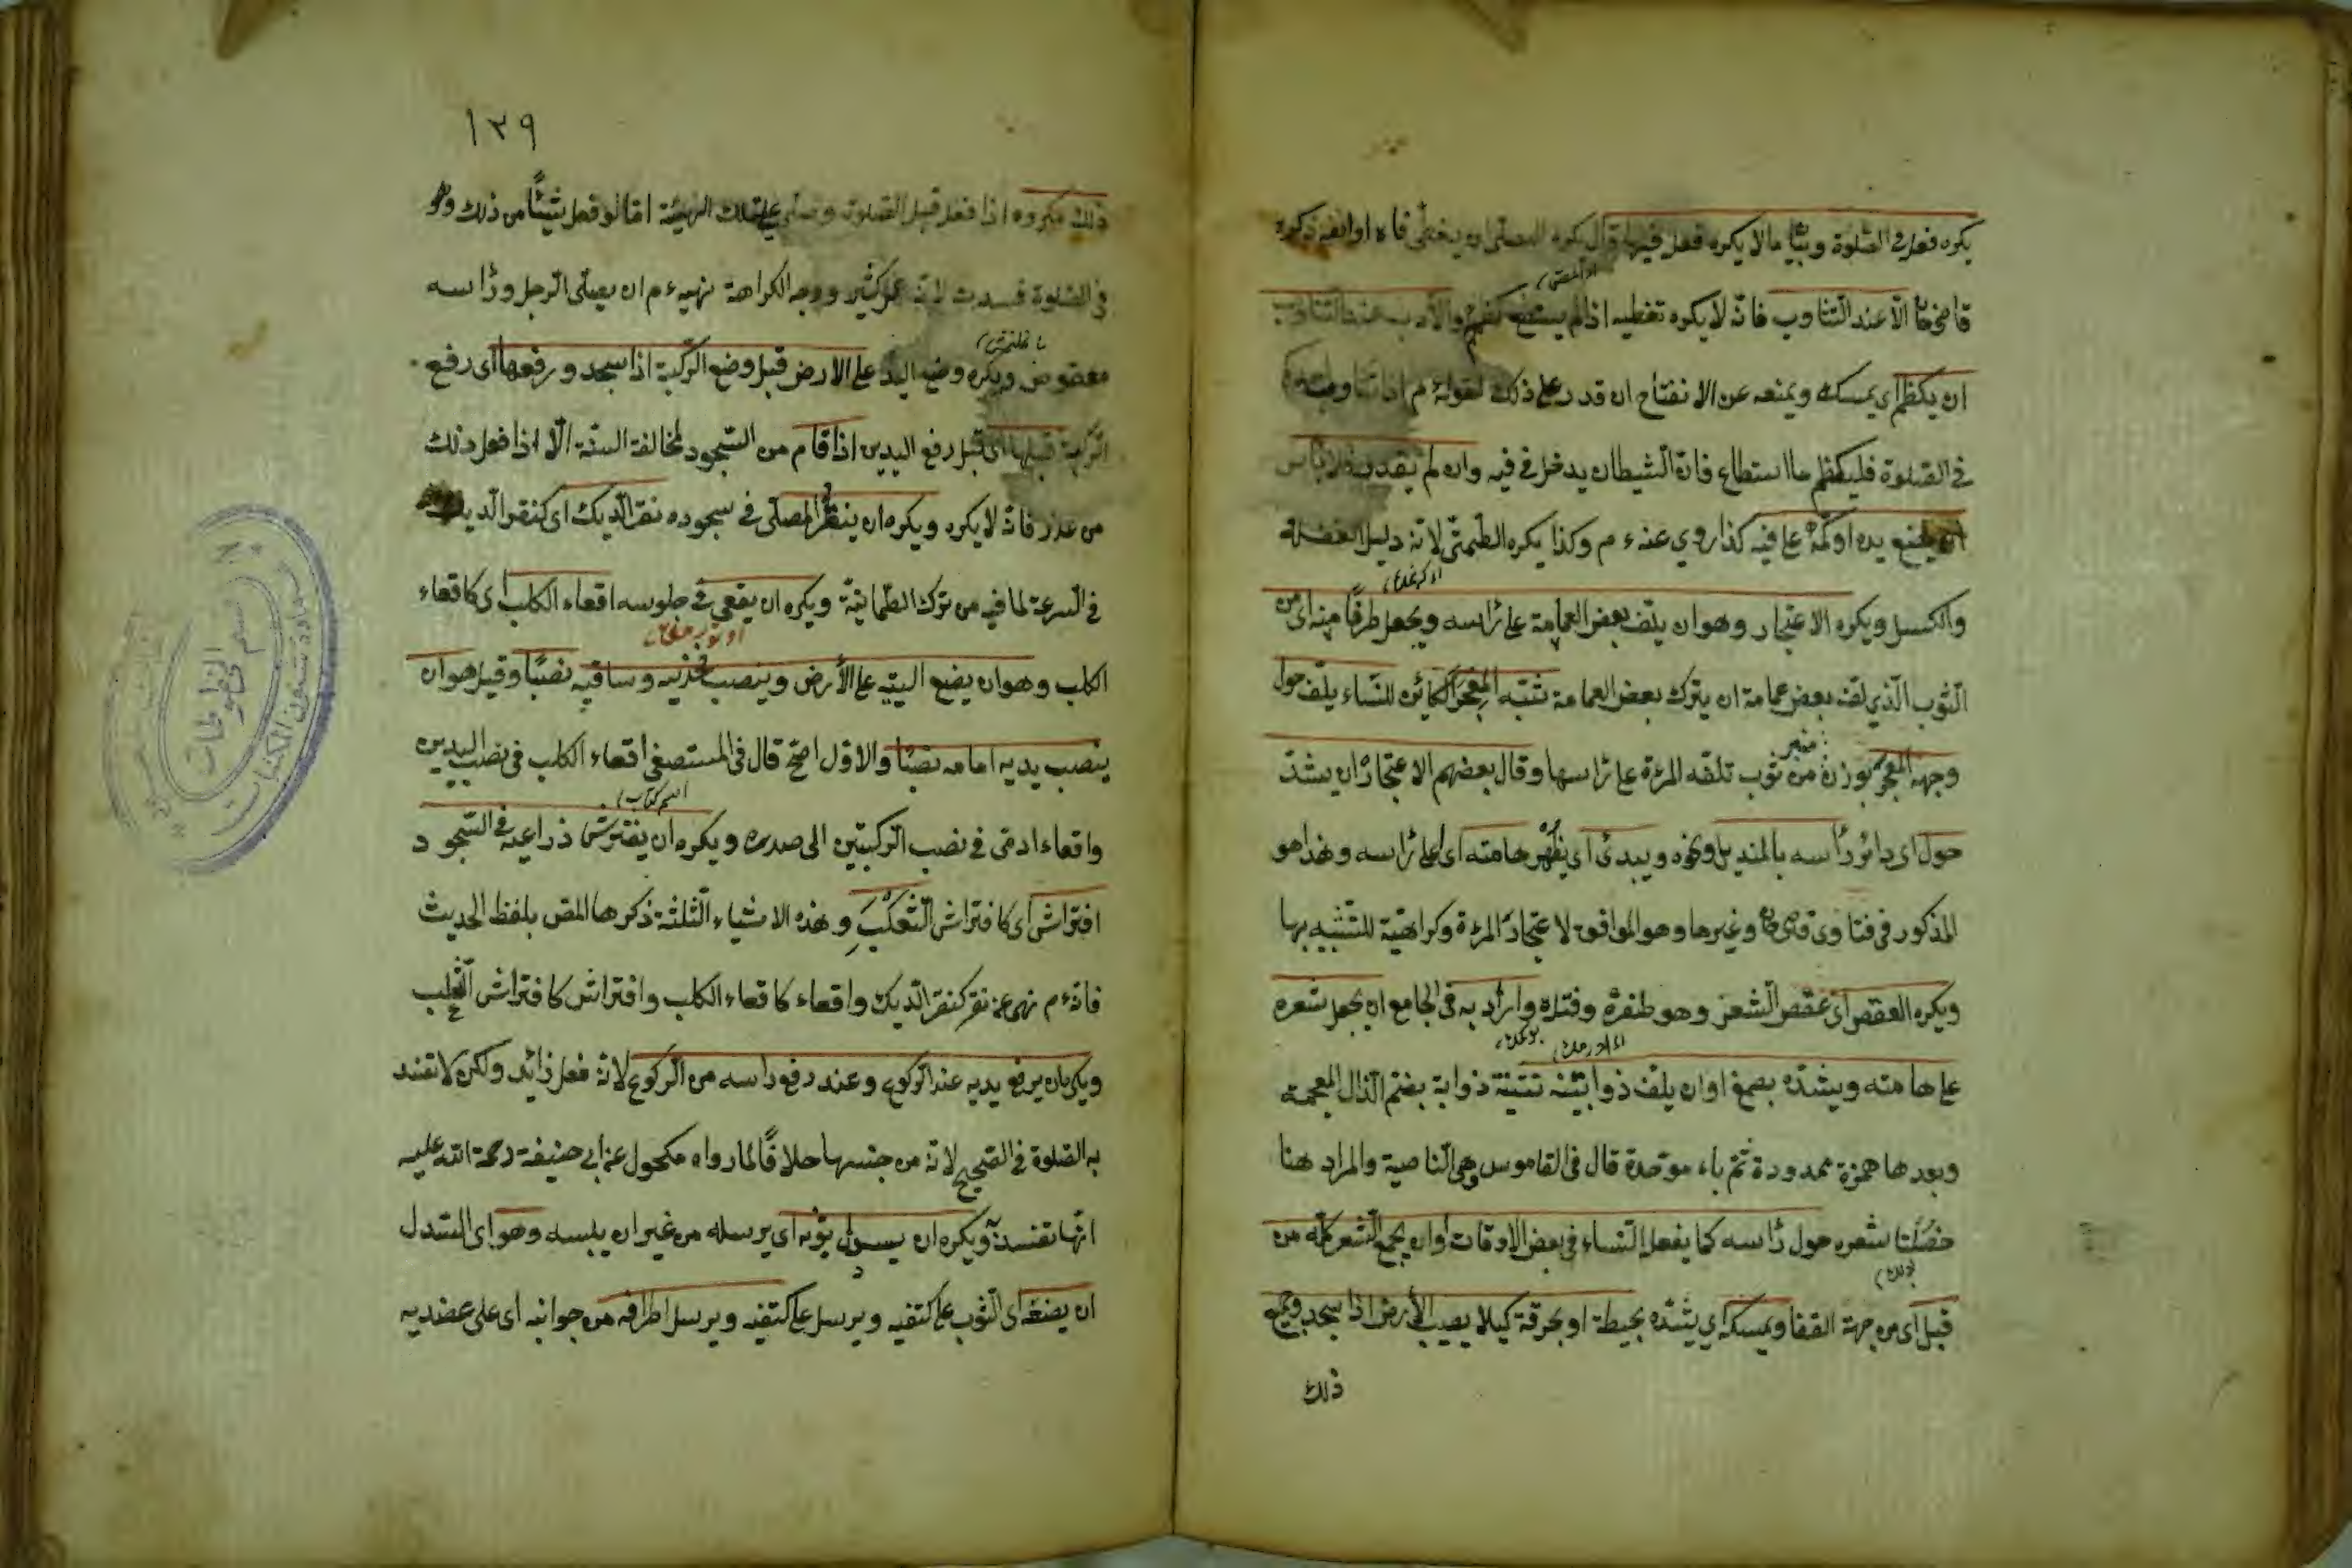 يكره فعله في الصلوة وبيّنا ما لا يكره فعله فيها وقال يكره للمصلى ان يغطى فاه او انفه ذكره
قاضى خان الّا عند التثاوب فانّه لا يكره تغطيه اذا لم يستطع كظمه والادب عند التثاوب
ان يكظم اى يمسكه ويمنعه عن الانفتاح ان قدر على ذلك لقوله ءم اذا تثاوب احدكم
في الصلوة فليكظم ما استطاع فانّ الشيطان يدخل في فيه وان لم يقدر فلا بأس
ان يضع يده او كمّه على فيه كذا روي عنه ءم وكذا يكره التمطّى لانّه دليل الغفلة
والكسل ويكره الاعتجار وهو ان يلف بعض العمامة على رأسه ويجعل طرفًا منه اى من
الثوب الذي لفّه بعض عمامة ان يترك بعض العمامة شبه المعجر الكائن للنساء يلف حول
وجهه المعجر بوزن منبر ثوب تلفّه المرءة على رأسها وقال بعضهم الاعتجار ان يشدّ
حول اى دائر رأسه بالمنديل ونحوه ويبدى اى يظهر هامته اى اعلى رأسه وهذا هو
المذكور في فتاوى قاضى خان وغيرها وهو الموافق لاعتجار المرءة وكراهيّة للتشبيه بها
ويكره العقص اى عقص الشعر وهو ظفره وفتله واراد به في الجامع ان يجعل شعره
على هامته ويشدّه بصمغ او ان يلفّ ذوابتيه تثنية ذوابة بضم الذال المعجمه
وبعدها همزة ممدودة ثمّ باء موحّدة قال في القاموس وهى الناصية والمراد هنا
خصلتا شعره حول رأسه كما يفعل النساء في بعض الاوقات او ان يجمع الشعر كلّه من
قبل اى من جهة القفا ويمسكه اي يشدّه بخيطة او بخرقة كيلا يصيب الأرض اذا سجد وجميع
ذلك
١٣٩
ذلك مكروه اذا فعله قبل الصلوة وصلى على تلك الهيئة امّا لو فعل شيئًا من ذلك وهو
في الصلوة فسدت لانّه عمل كثير ووجه الكراهة نهيه ءم ان يصلّى الرجل ورأسه
معقوص ويكره وضع اليد على الارض قبل وضع الركبة اذا سجد ورفعها اى رفع
الركبة قبلها اى قبل رفع اليدين اذا قام من السجود لمخالفة السنّة الّا اذا فعل ذلك
من عذر فانّه لا يكره ويكره ان ينقر المصلّى في سجوده نقر الديك اى كنقر الديك
في السرعة لما فيه من ترك الطمانيّة ويكره ان يقعى في جلوسه اقعاء الكلب اى كاقعاء
الكلب وهو ان يضع اليتيه على الأرض وينصب فخذيه وساقيه نصبًا وقيل هو ان
ينصب يديه امامه نصبًا والاوّل اصحّ قال في المستصفى اقعاء الكلب في نصب اليدين
واقعاء ادمّى في نصب الركبتين الى صدره ويكره ان يفترش ذراعيه في السجود
افتراش اى كافتراش الثعلب وهذه الاشياء الثلثة ذكرها المص بلفظ الحديث
فانّه ءم نهى عن نقر كنقر الديك واقعاء كاقعاء الكلب وافتراش كافتراش الثعلب
ويكره ان يرفع يديه عند الركوع وعند رفع رأسه من الركوع لانّه فعل زائد ولكن لا تفسد
به الصلوة في الصحيح لانّه من جنسها خلافًا لما رواه مكحول عن ابى حنيفة رحمة الله عليه
انّها تفسد ويكره ان يسدل ثوبه اى يرسله من غير ان يلبسه وهو اى السدل
ان يضعه اى الثوب على كتفيه ويرسل على كتفيه ويرسل اطرافه من جوانبه اى على عضديه